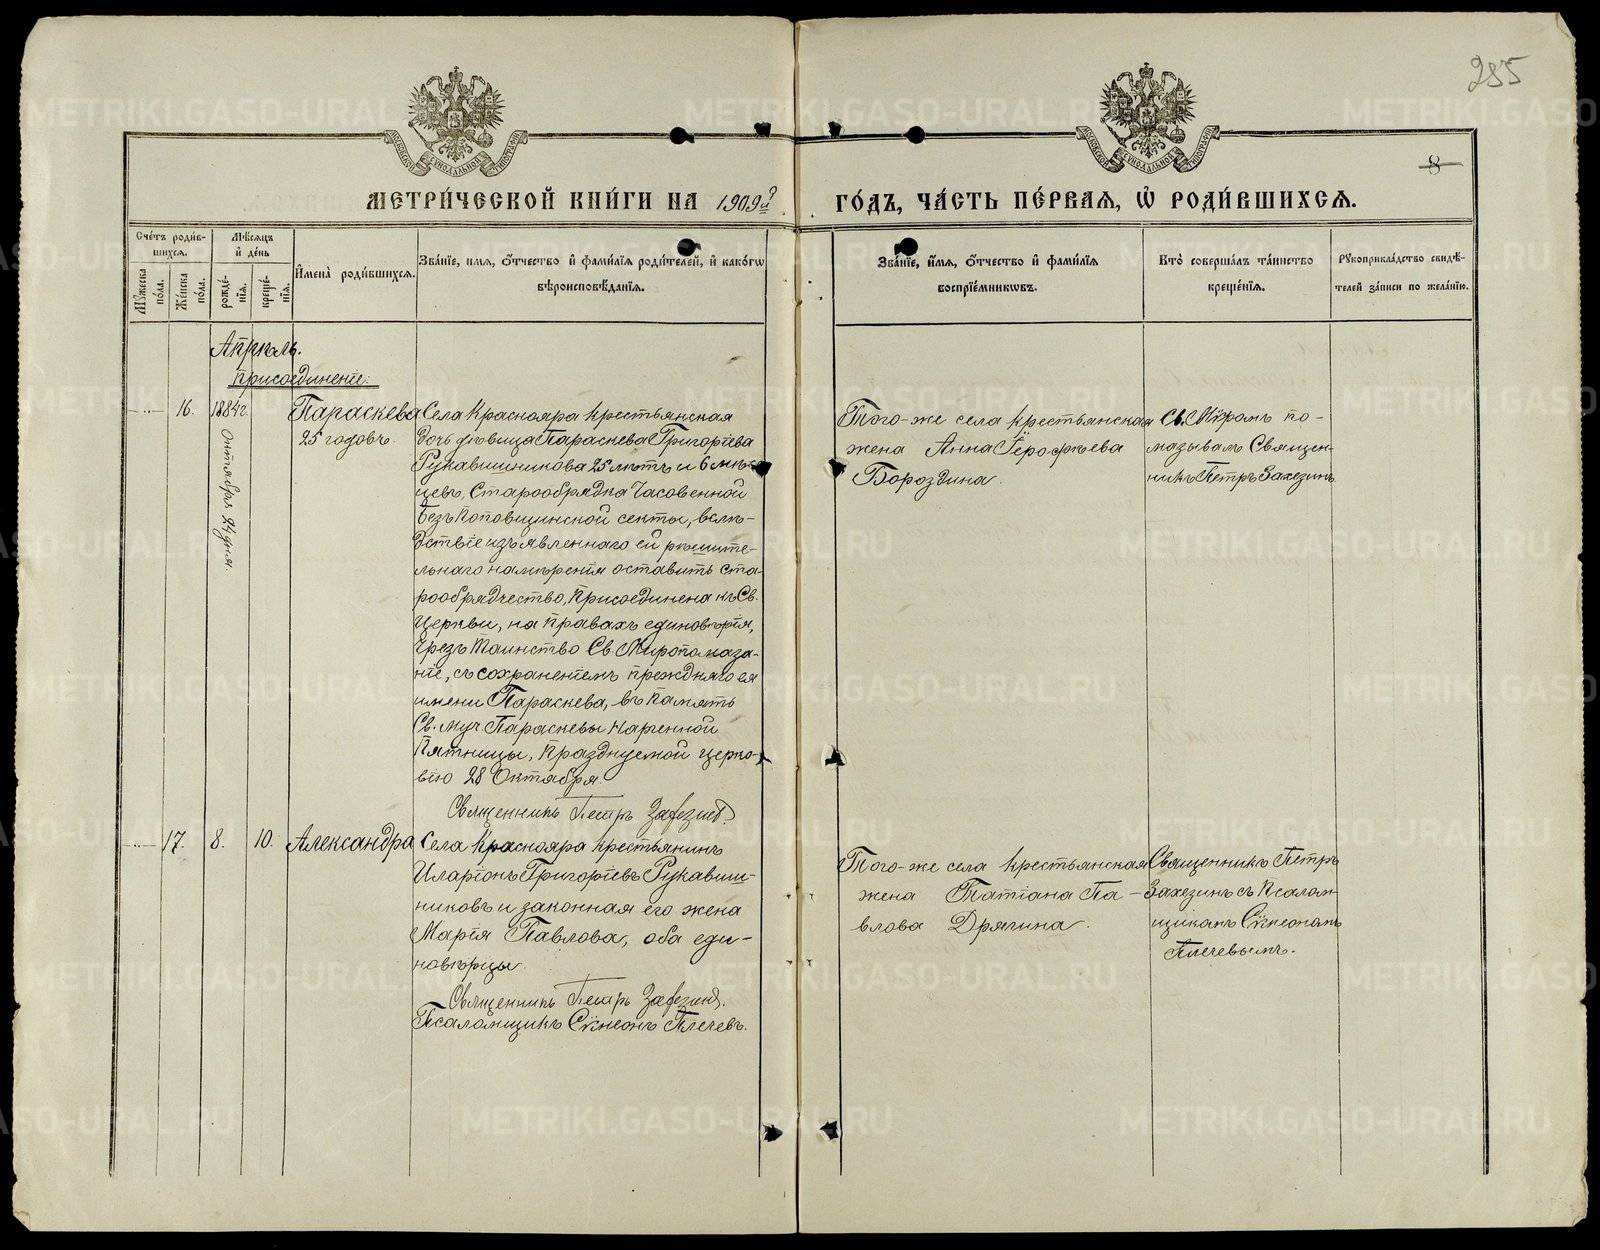 285
8
МЕТРИ́ЧЕСКОЙ КНИ́ГИ НА 1909й
ГО́ДЪ, ЧА́СТЬ ПЕ́РВАѦ, Ѡ҆ РОДИ́ВШИХСѦ.
Сче́тъ роди́в-
шихсѧ.
Мꙋ́жеска по́ла.
Же́нска по́ла.
Мѣ́сѧцъ
и҆ де́нь
рожде́-
нїѧ.
креще́-
нїѧ.
И҆мена̀ роди́вшихсѧ.
Зва́нїе, и҆мѧ, ѻ҆́тчество и҆ фами́лїѧ роди́телей, и҆ како́гѡ
вѣроисповѣ́данїѧ.
Зва́нїе, и҆́мѧ, ѻ҆́тчество и҆ фами́лїѧ
воспрїе́мникѡвъ.
Кто̀ соверша́лъ та́инство
креще́нїѧ.
Рꙋкоприкла́дство свидѣ́-
телей за́писи по жела́нїю.
Апрѣль.
Присоединенїе:
16.
1884г.
Октября 24 дня.
Параскева
25 годовъ.
Села Краснояра крестьянская
дочь дѣвица Параскева Григорїева
Рукавишникова 25 лѣтъ и 6 мѣся
цевъ, Старообрядка Часовенной
безъ Поповщинской секты, велѣ-
дствїе изъявленнаго ей рѣшите-
льнаго намѣренїя оставить ста-
рообрядчество, Присоединена къ Св.
Церкви, на правахъ единовѣрїя,
Чрезъ Таинство Св. Миропомаза-
нїе, съ сохраненїемъ прежднаго ея
имени Параскева, въ Память
Св. муч. Параскевы Нареченной
Пятницы, Празднуемой Церко-
вїю 28 Октября.
Священникъ Петръ Захезинъ.
Того-же села крестьянская
жена Анна Ерофѣева
Бороздина.
Св. Мѵромъ по-
мазывалъ Священ-
никъ Петръ Захезинъ
17.
8.
10.
Александра
Села Краснояра крестьянинъ
Иларїонъ Григорїевъ Рукавиш-
никовъ и законная его жена
Марїя Павлова, оба еди-
новѣрцы.
Священникъ Петръ Захезинъ.
Псаломщикъ Сѵмеонъ Плечевъ.
Того-же села крестьянская
жена Татїана Па-
влова Дрягина.
Священникъ Петръ
Захезинъ съ Псалом-
щикомъ Сѵмеономъ
Плечевымъ.
METRIKI.GASO-URAL.RU